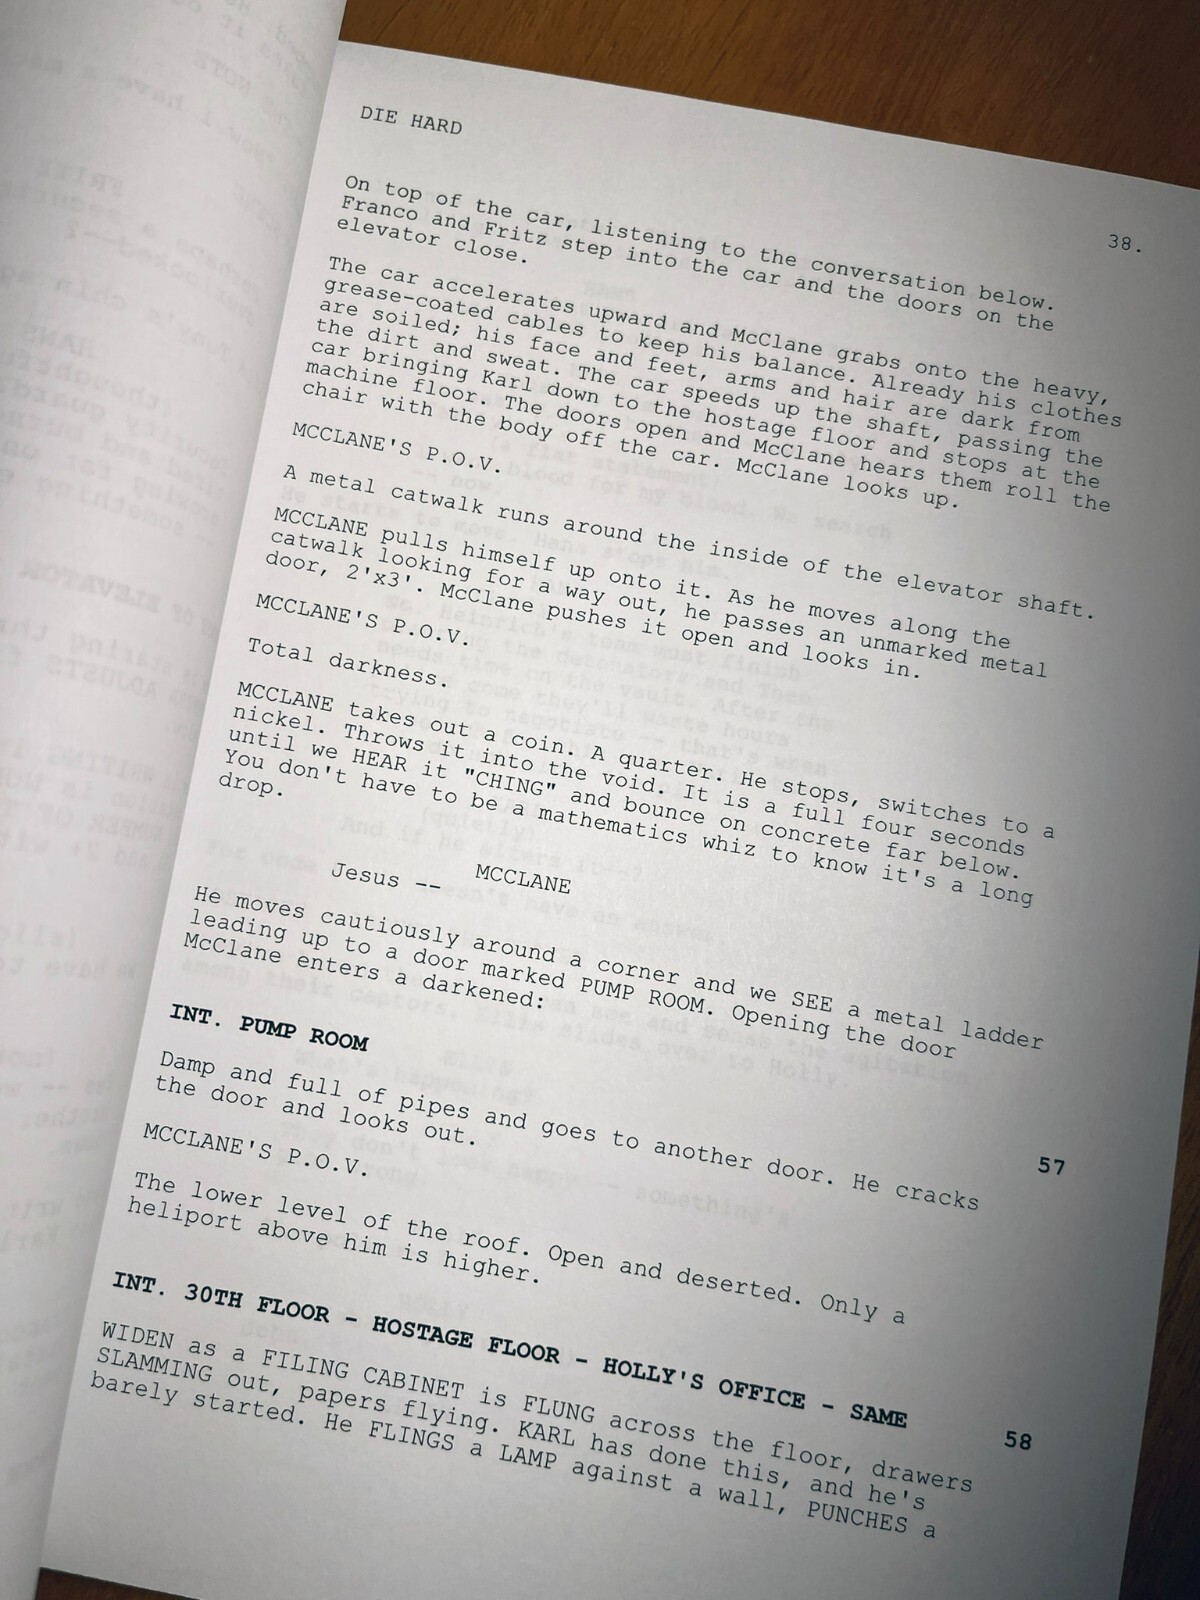 DIE HARD
38.
On top of the car, listening to the conversation below.
Franco and Fritz step into the car and the doors on the
elevator close.
The car accelerates upward and McClane grabs onto the heavy,
grease-coated cables to keep his balance. Already his clothes
are soiled; his face and feet, arms and hair are dark from
the dirt and sweat. The car speeds up the shaft, passing the
car bringing Karl down to the hostage floor and stops at the
machine floor. The doors open and McClane hears them roll the
chair with the body off the car. McClane looks up.
MCCLANE'S P.O.V.
A metal catwalk runs around the inside of the elevator shaft.
MCCLANE pulls himself up onto it. As he moves along the
catwalk looking for a way out, he passes an unmarked metal
door, 2'x3'. McClane pushes it open and looks in.
MCCLANE'S P.O.V.
Total darkness.
MCCLANE takes out a coin. A quarter. He stops, switches to a
nickel. Throws it into the void. It is a full four seconds
until we HEAR it "CHING" and bounce on concrete far below.
You don't have to be a mathematics whiz to know it's a long
drop.
MCCLANE
Jesus --
He moves cautiously around a corner and we SEE a metal ladder
leading up to a door marked PUMP ROOM. Opening the door
McClane enters a darkened:
INT. PUMP ROOM 57
Damp and full of pipes and goes to another door. He cracks
the door and looks out.
MCCLANE'S P.O.V.
The lower level of the roof. Open and deserted. Only a
heliport above him is higher.
INT. 30TH FLOOR - HOSTAGE FLOOR - HOLLY'S OFFICE - SAME 58
WIDEN as a FILING CABINET is FLUNG across the floor, drawers
SLAMMING out, papers flying. KARL has done this, and he's
barely started. He FLINGS a LAMP against a wall, PUNCHES a